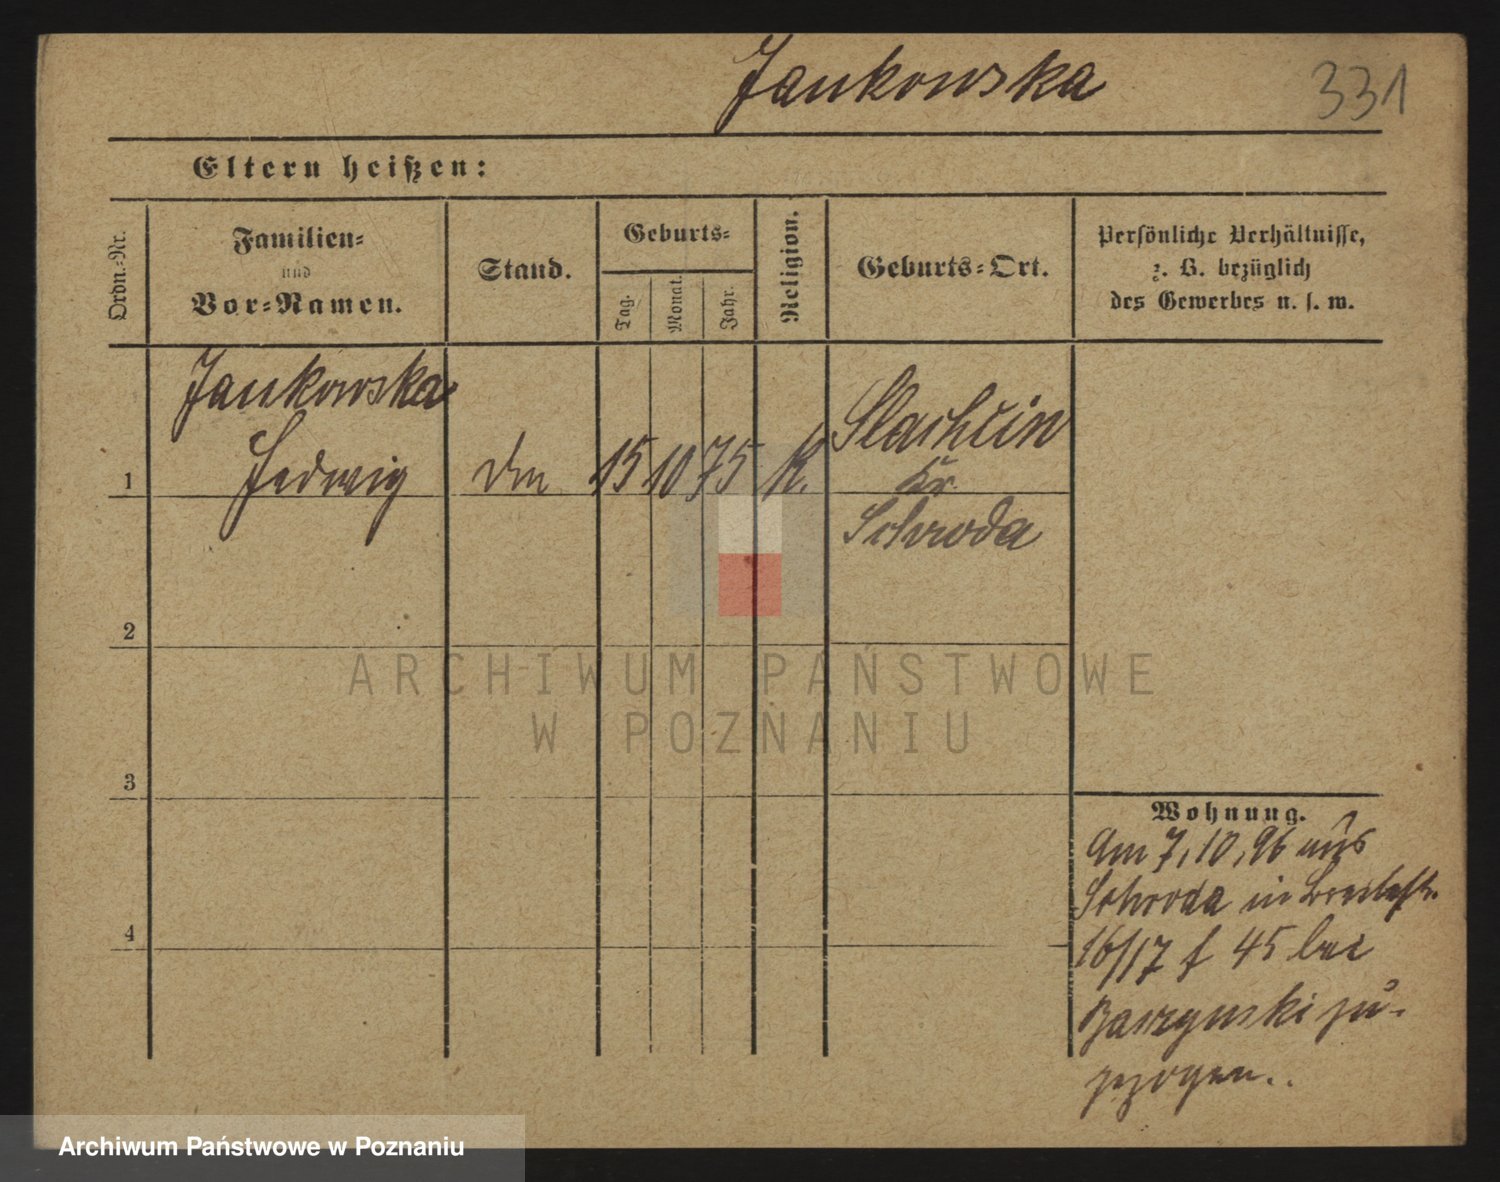 Jankowska 331
Eltern heißen:
Ordn.-Nr.
Familien-
und
Vor-Namen.
Stand.
Geburts-
Tag.
Monat.
Jahr.
Religion.
Geburts-Ort.
Persönliche Verhältnisse,
z. B. bezüglich
des Gewerbes u. s. w.
Jankowska
Hedwig
1
15 10 75 K.
Slachcin
Kr.
Schroda
2
ARCHIWUM PAŃSTWOWE
W POZNANIU
3
Wohnung.
Am 7, 10, 96 aus
Schroda in
16/17 f 45 bei
zu-
gezogen.
4
Archiwum Państwowe w Poznaniu